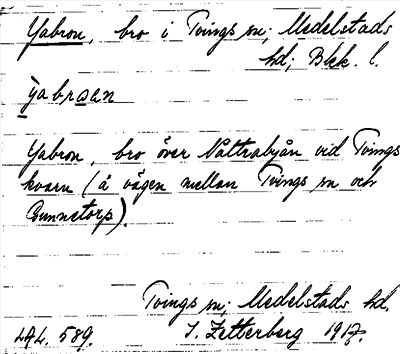 Yabron, bro i Tvings sn; Medelstads
hd; Blek. l.
yabroan
Yabron, bro över Nättrabyån vid Tvings
kvarn (å vägen mellan Tvings sn och
Gunnetorp).
Tvings sn; Medelstads hd.
LAL. 589. J. Zetterberg 1917.